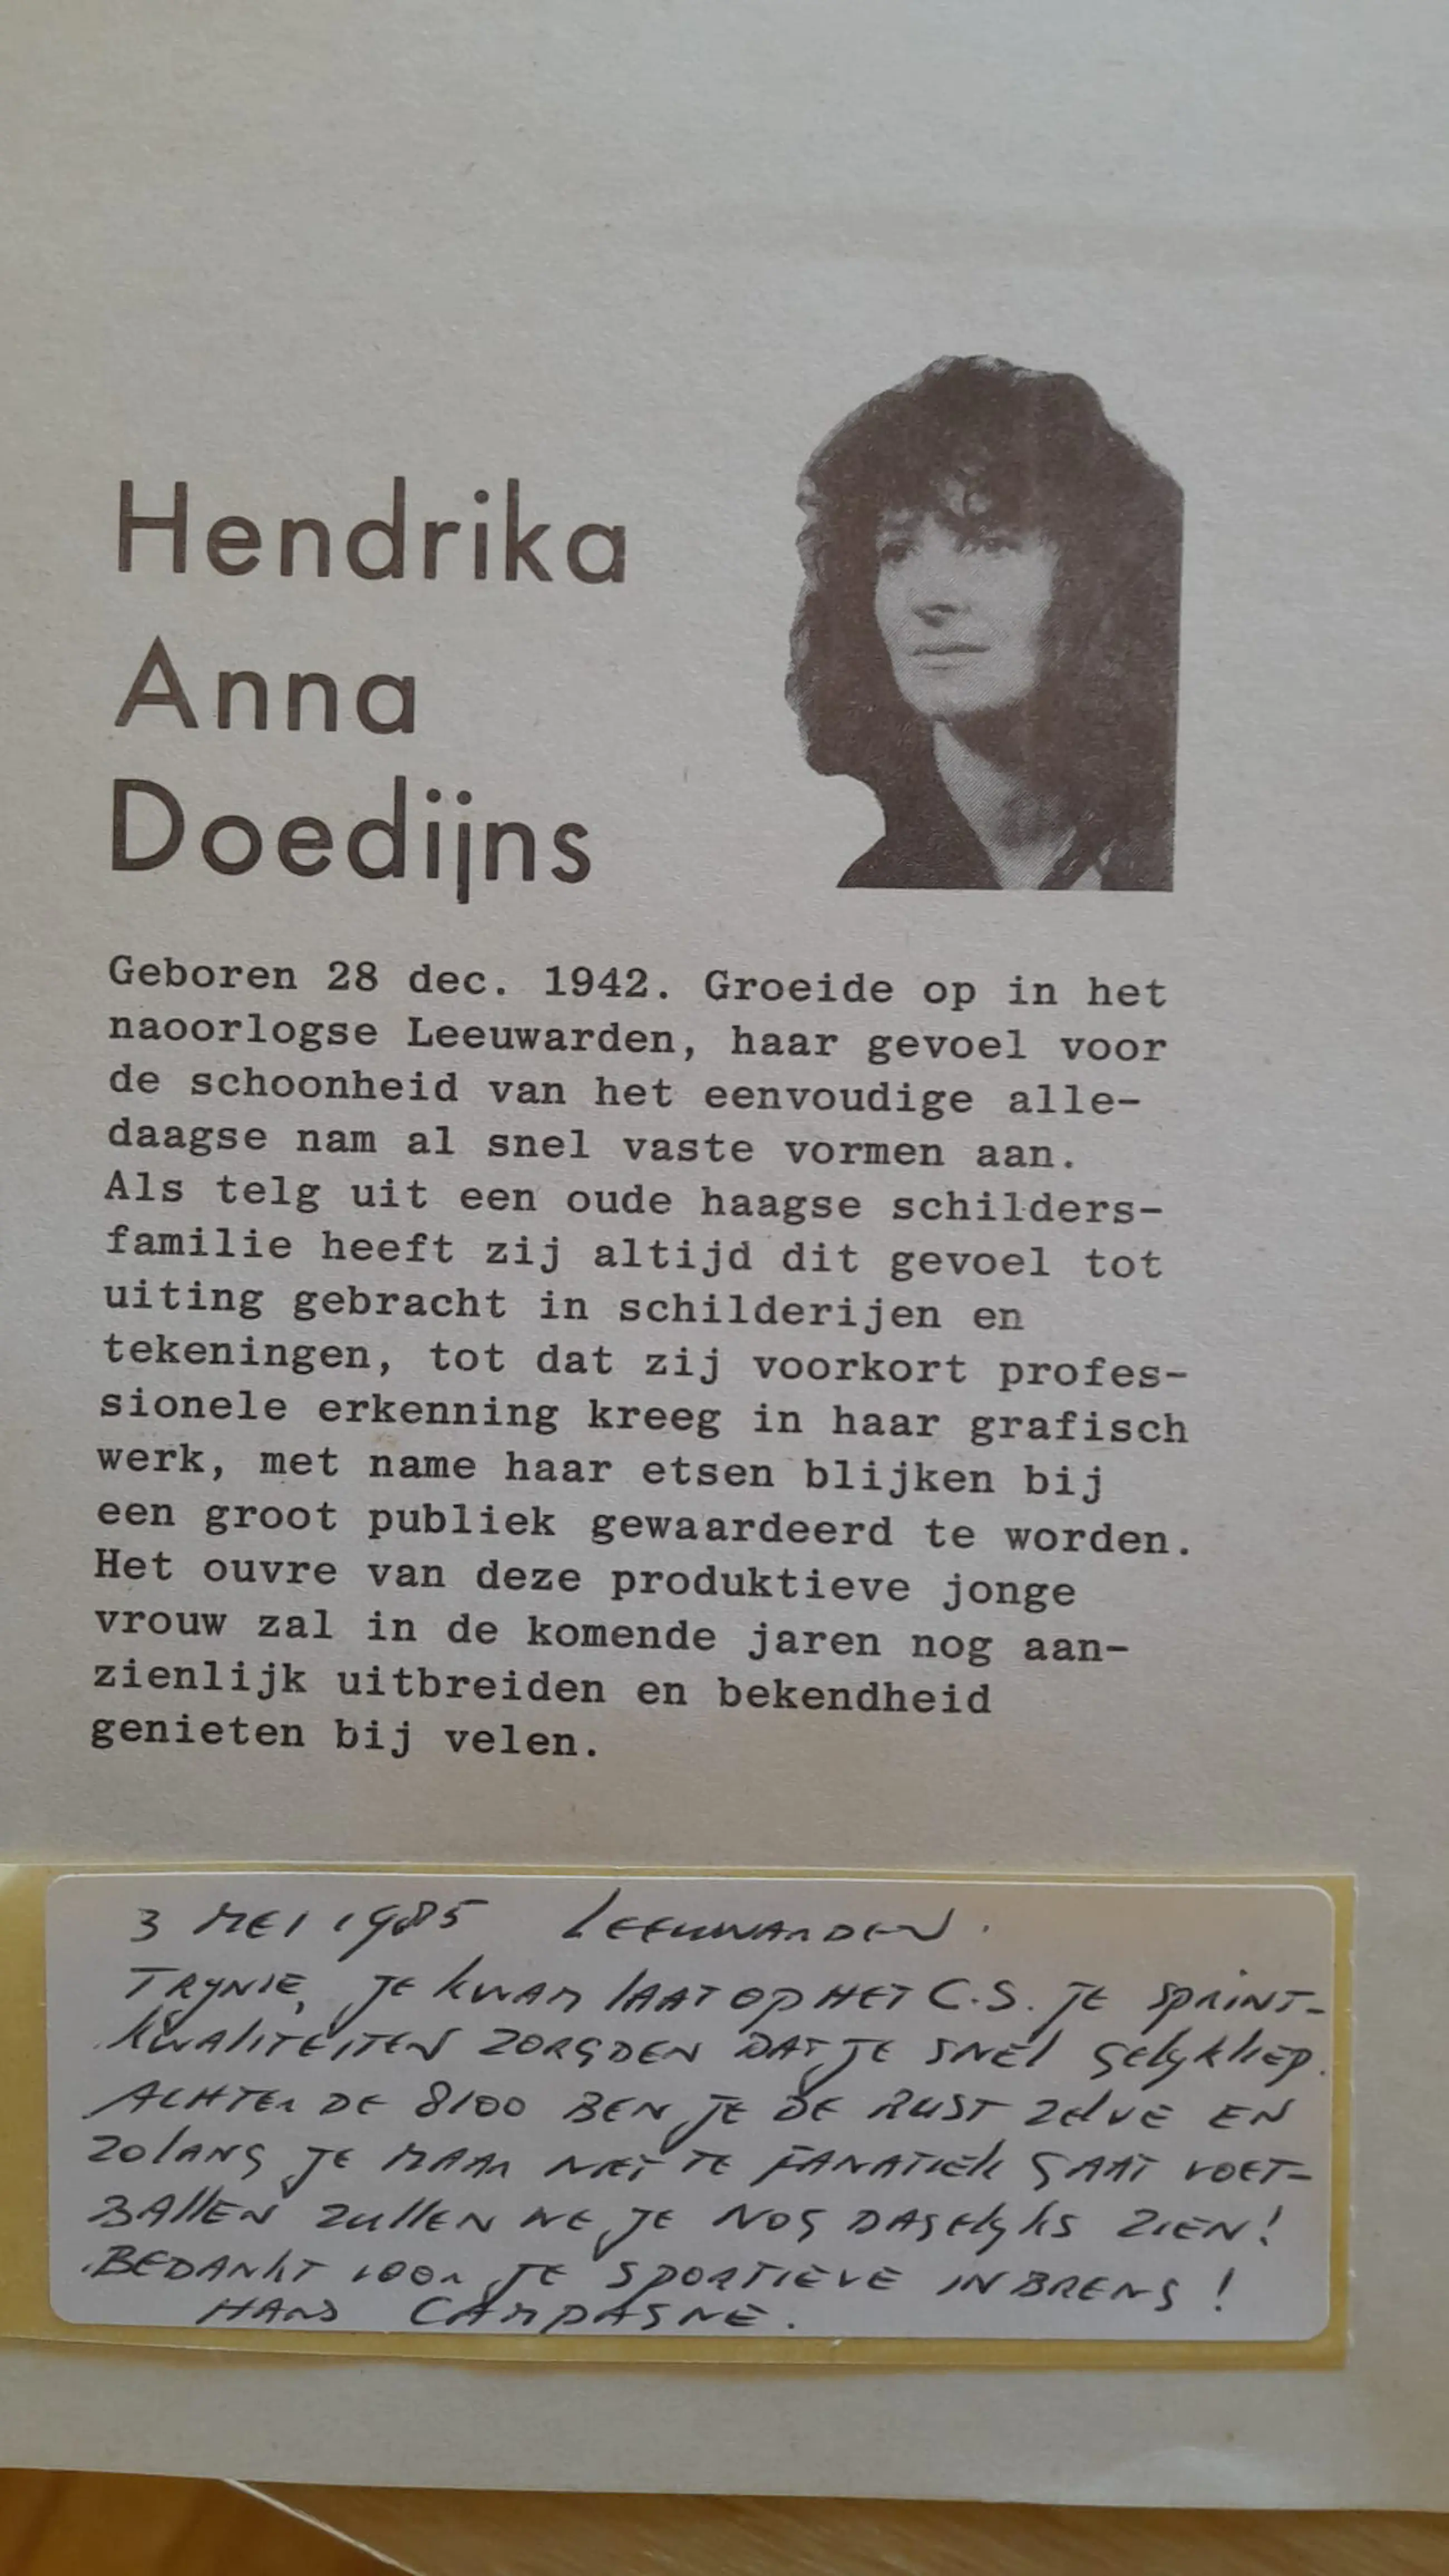 Hendrika
Anna
Doedijns
Geboren 28 dec. 1942. Groeide op in het
naoorlogse Leeuwarden, haar gevoel voor
de schoonheid van het eenvoudige alle-
daagse nam al snel vaste vormen aan.
Als telg uit een oude haagse schilders-
familie heeft zij altijd dit gevoel tot
uiting gebracht in schilderijen en
tekeningen, tot dat zij voorkort profes-
sionele erkenning kreeg in haar grafisch
werk, met name haar etsen blijken bij
een groot publiek gewaardeerd te worden.
Het ouvre van deze produktieve jonge
vrouw zal in de komende jaren nog aan-
zienlijk uitbreiden en bekendheid
genieten bij velen.
3 MEI 1985 LEEUWARDEN.
TRYNIE, JE KWAM LAAT OP HET C.S. JE SPRINT-
KWALITEITEN ZORGDEN DAT JE SNEL GELYKLIEP.
ACHTER DE 8100 BEN JE DE RUST ZELVE EN
ZOLANG JE MAAR NIET TE FANATIEK GAAT VOET-
BALLEN ZULLEN WE JE NOG DAGELYKS ZIEN!
BEDANKT VOOR JE SPORTIEVE INBRENG!
HANS CAMPAGNE.